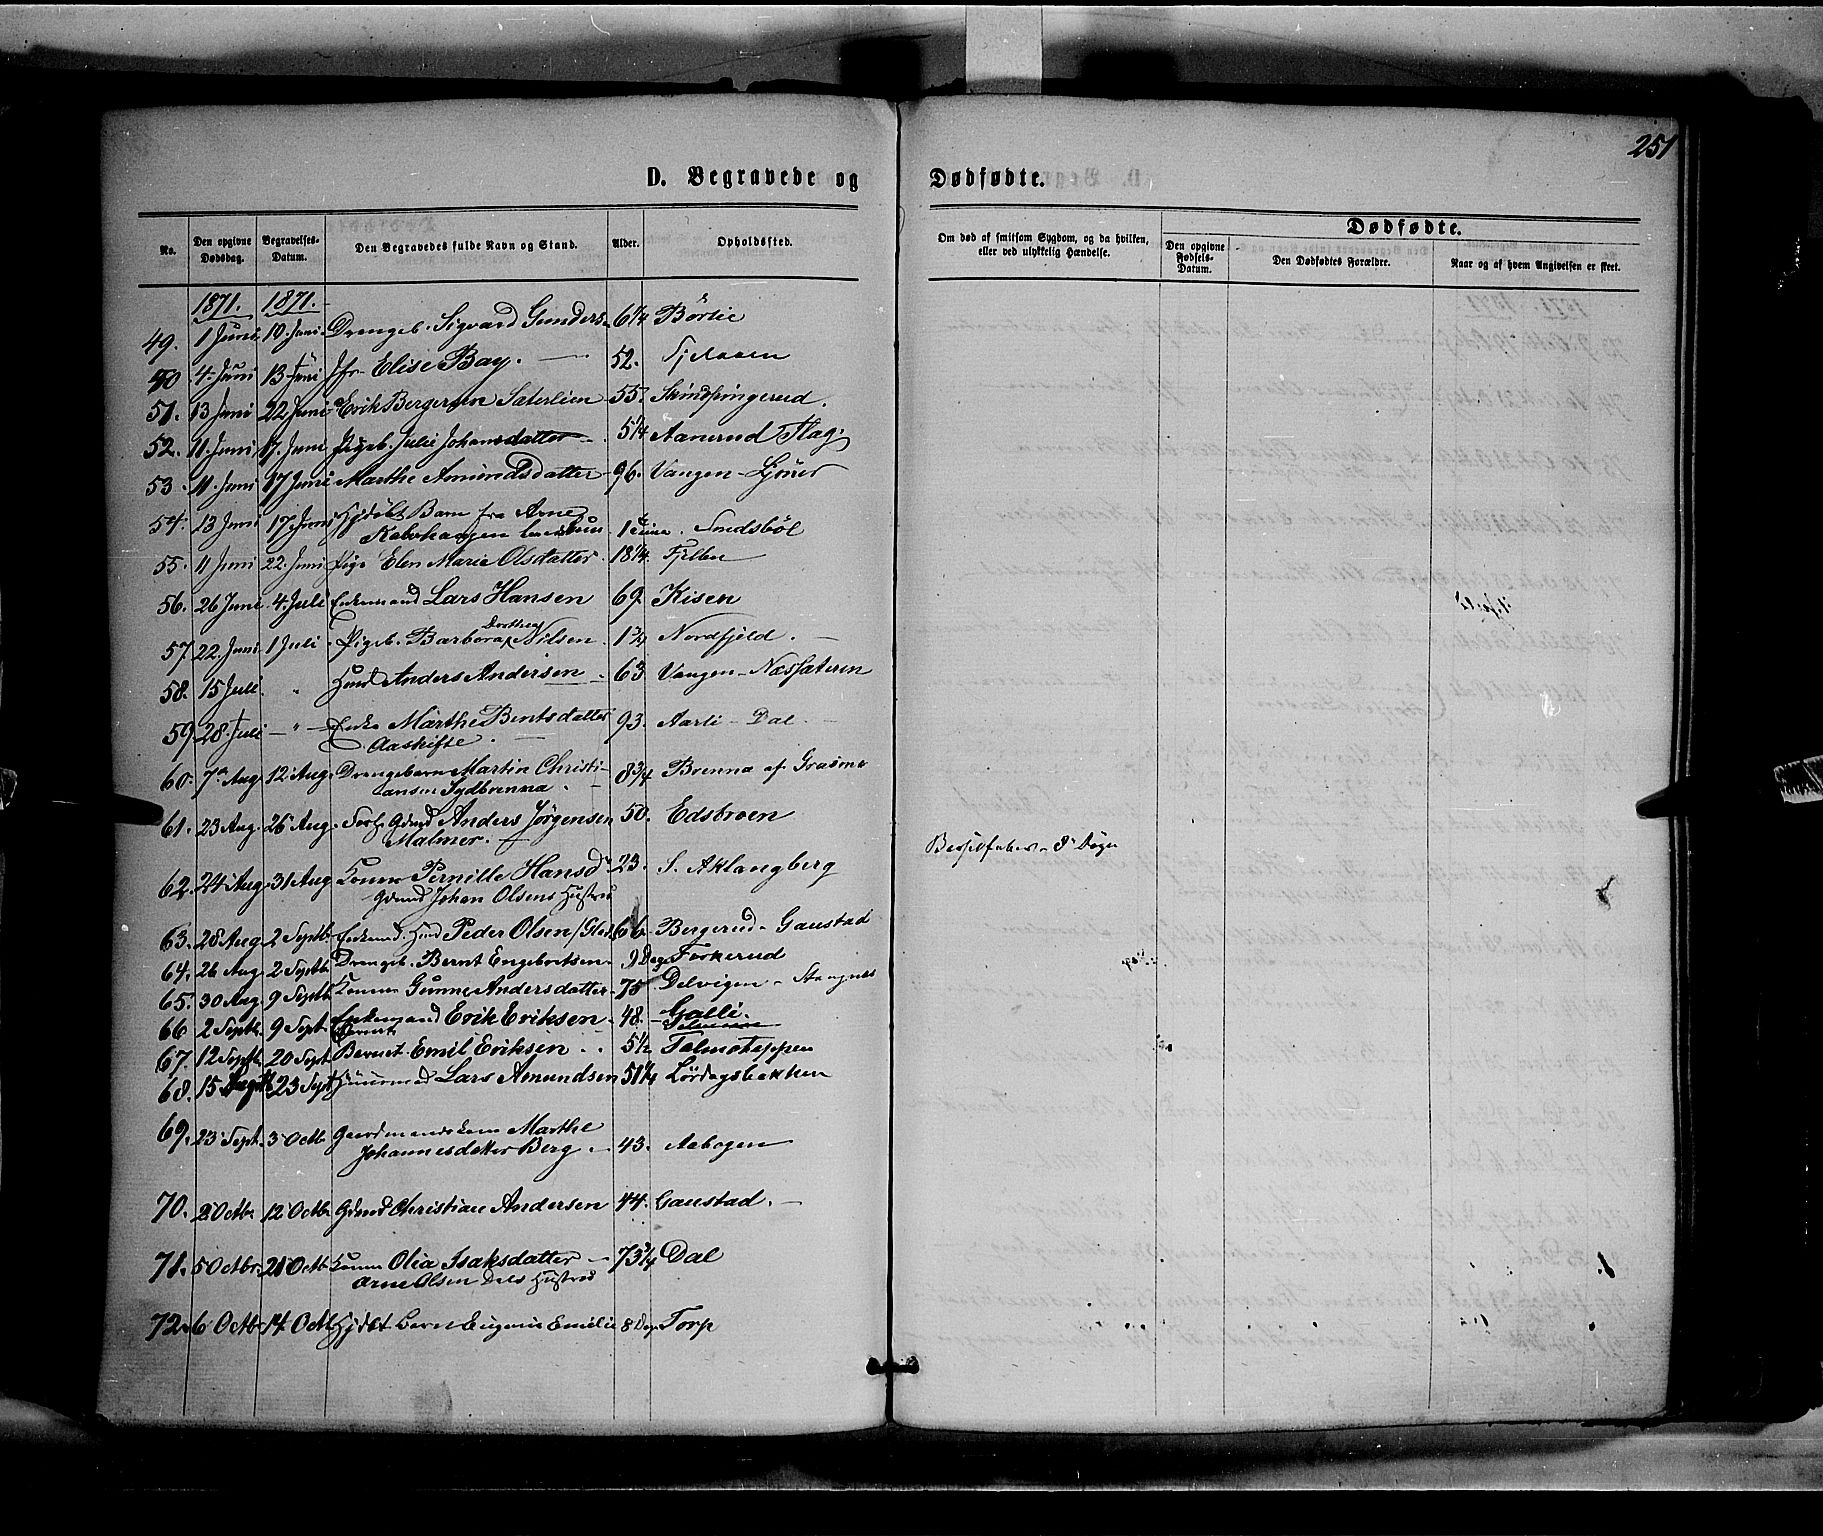 251
D. Begravede og Dødfødte.
No. Den opgivne Dødsdag. Begravelses-Datum. Den Begravedes fulde Navn og Stand. Alder. Opholdssted. Om død af smitsom Sygdom, og da hvilken, eller ved ulykkelig Hændelse. Dødfødte. Den opgivne Fødsels-Datum. Den Dødfødtes Forældre. Naar og af hvem Angivelsen er skeet.
1871. 1871.
49. 1 Juni 10 Juni Drengeb. Sigvard Gunders- 6 1/4 Børlie
50 4. Juni 13 Juni Jfr Elise Bay. 52.
51. 13 Juni 22 Juni Erik Bergersen Sæterlien 55
52. 11. Juni 17. Juni Pigeb. Julie Johansdatter 5 1/4 Aanerud
53. 11. Juni 17 Juni Marthe Amundsdatter 96. Vangen
54. 13 Juni 17. Juni Hjdøbt Barn fra Arne
1 Time.
55. 11 Juni 22. Juni Pige Elen Marie Olsdatter. 18 1/4
56. 26 Juni 4. Juli Enkemand Lars Hansen 69. Kisen
57 22. Juni 1 Juli Pigeb. Barbora Dorthea Nilsen. 1 3/4 Nordfjeld.
58. 15 Juli " Hmd Anders Andersen 63 Vangen - Næssæteren
59. 28. Juli " Enke Marthe Bentsdatter 93. Aarli - Dal
Aaskifte
60. 7 Aug 12 Aug. Drengebarn Martin Christi- 8 3/4 Brenna af Grasmo
ansen Sydbrenna.
61. 23 Aug. 26 Aug. Gdmd Anders Jørgensen 50. Edsbroen
Malmer.
62. 24 Aug. 31 Aug Konen Pernille Hansd 23. S. Aklangberg 8 Dage
Gdmd Johan Olsens Hustru
63. 28 Aug 2 Septb. Enkemd. Hmd Peder Olsen 66 Bergerud - Gaustad
64. 26 Aug 2 Septb Drengeb. Bernt Engebretsen 9 Dag Forkerud
65. 30 Aug. 9 Septb Konen Gunne Andersdatter 75 Delvigen
66 2 Septb 9 Sept. Enkemand Erik Eriksen 48. Galli.
67. 12 Septb 20 Sept. Bernt Emil Eriksen 5 1/2 Talmotappen
68. 15 Septb 23 Sept Huusmd Lars Amundsen 51 1/4 Lørdagsbakken
69. 23 Sept. 3 Octb Gaardmandskone Marthe
Johannesdatter Berg. 43. Aabogen
70. 2 Octb 12 Octb Gdmd Christian Andersen 44. Gaustad.
71. 5 Octbr. 21 Octb Konen Olia Isaksdatter 73 3/4 Dal
Arne Olsen Dals Hustru
72. 6 Octb 14 Octb Hjdbt Barn Eugenie Emilie 8 Dage Torp